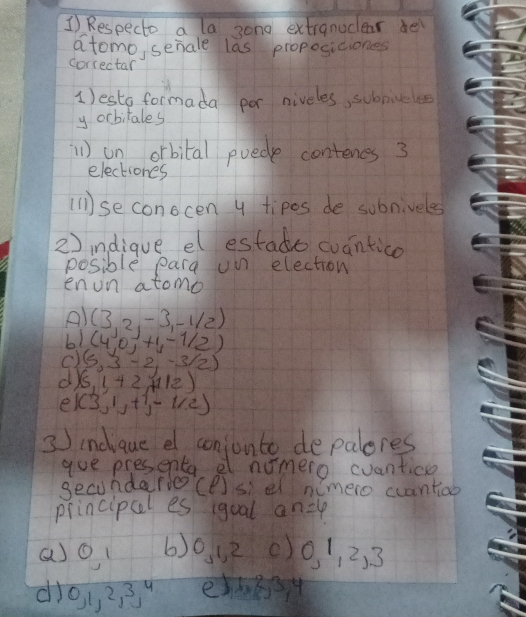 1) Respecto a la zona extranuclear del
átomo, señale las proposiciones
correctar
1) esta formada por niveles, subniveles
y orbitales
11) un orbital puede contenes 3
electrones
111) se conocen 4 tipos de subniveles
2) indique el estado cuántico
posible para un election
en un atomo
A) (3, 2, -3, -1/2)
b) (4, 0, +1, -1/2)
c) (5, 3 -2, -3/2)
d) (5, 1 + 2, +1/2)
e) (3, 1, +1, - 1/2)
3) indique el conjunto de palores
que presenta el número cuantico
secundario (l) si el número cuantico
principal es igual a n=4
a) 0, 1 b) 0, 1, 2 c) 0, 1, 2, 3
d) 0, 1, 2, 3, 4 e) 1, 2, 3, 4